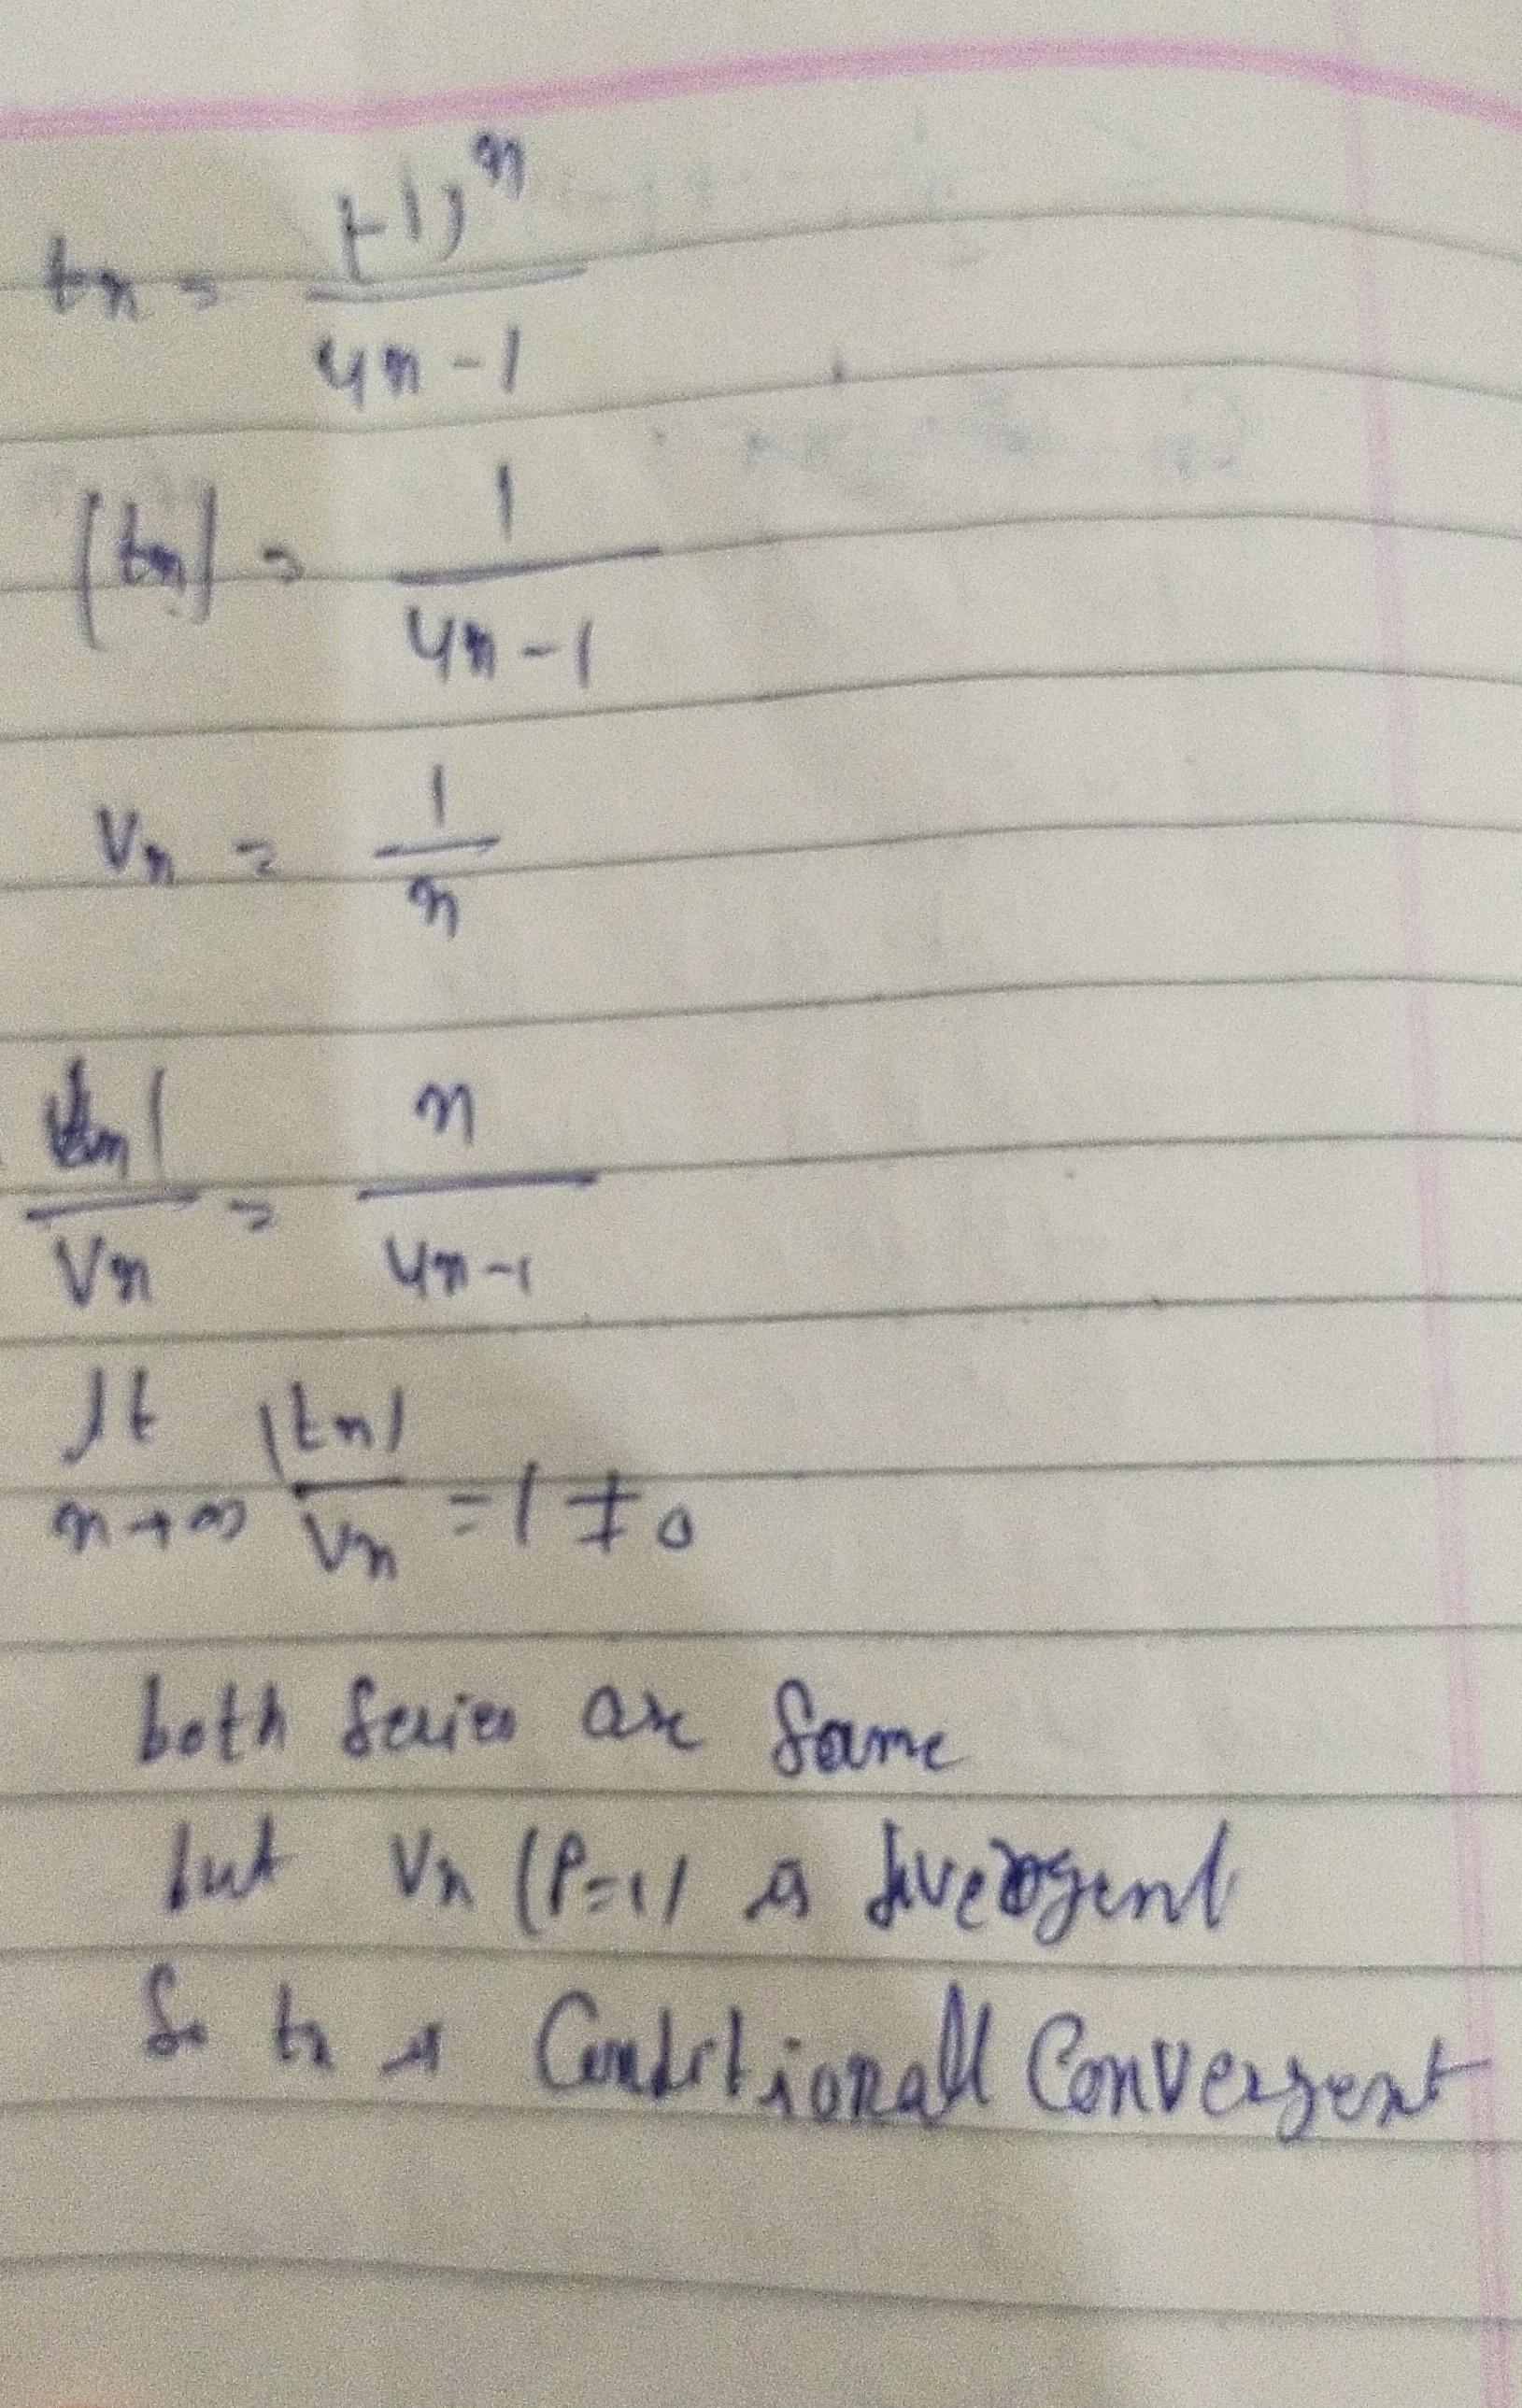 tn = (-1)^n / 4n-1
|tn| = 1 / 4n-1
Vn = 1 / n
|tn| / Vn = n / 4n-1
lt n→∞ |tn| / Vn = 1 ≠ 0
both Series are Same
but Vn (P=1) is divergent
So tn is Conditionall Convergent